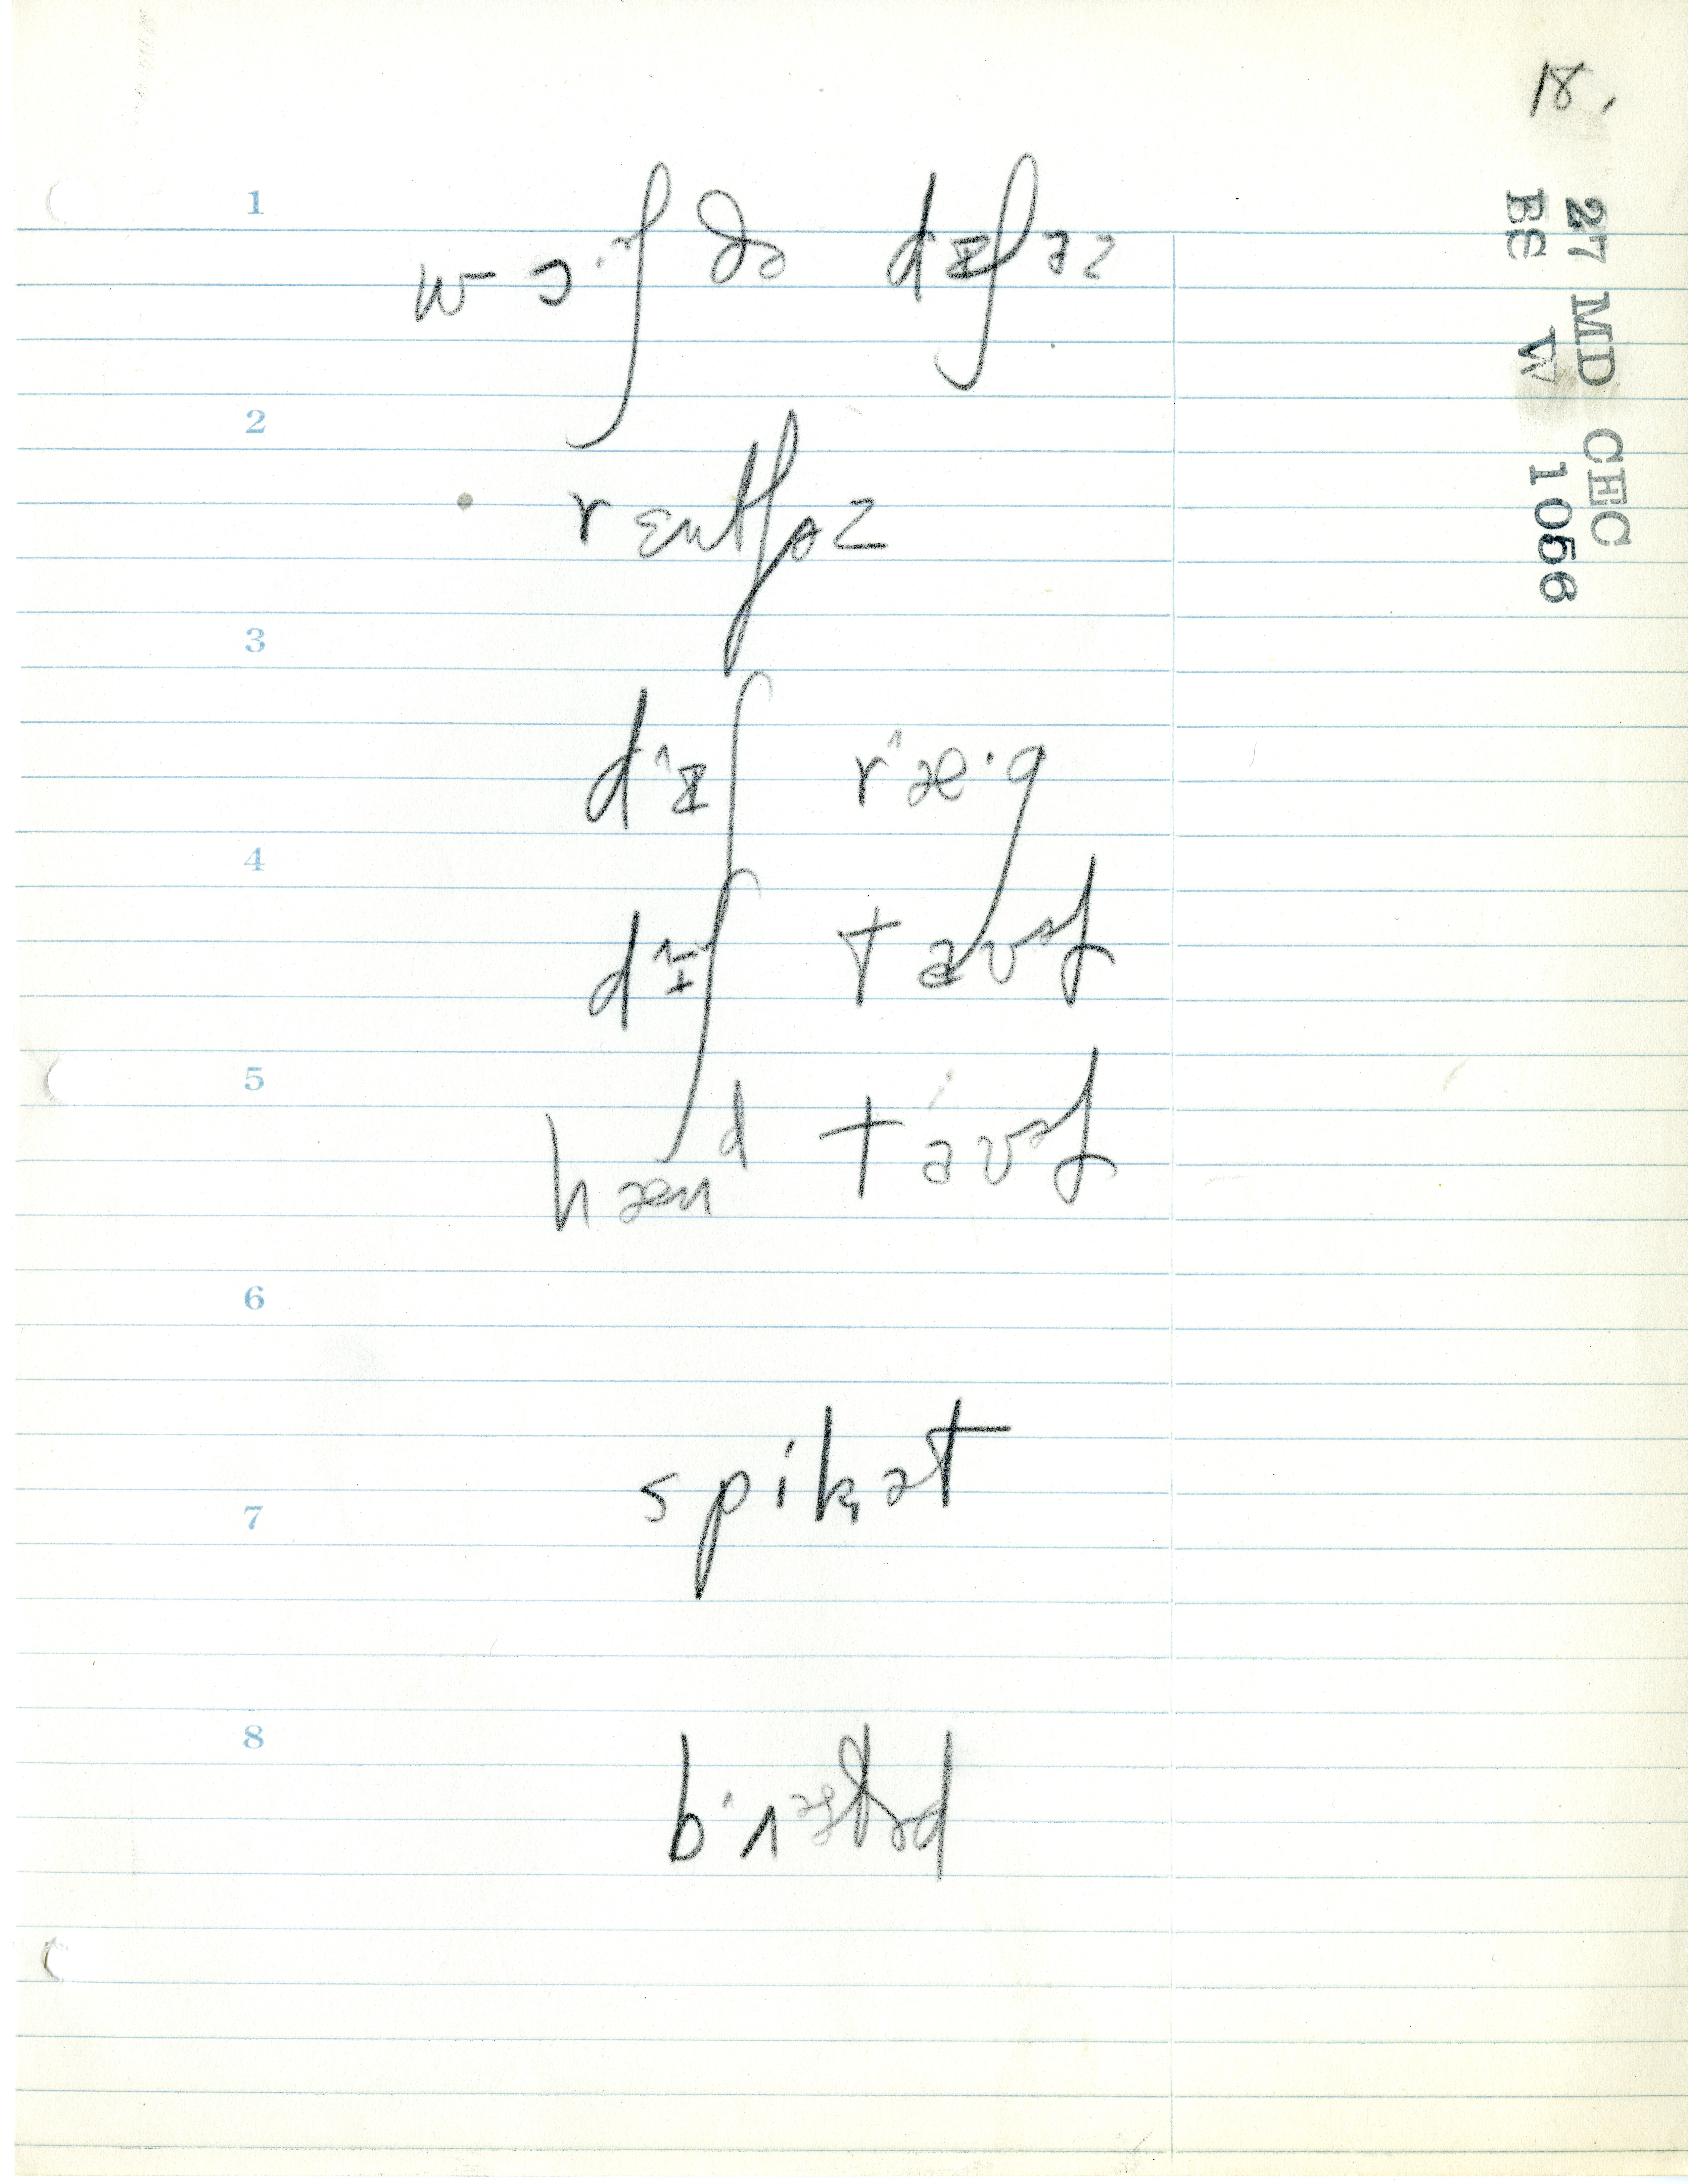 18.
27 MD CEC
BE W 1056
1
wɔ·ɪʃ ðə dɪʃəz
2
rɛntʃəz
3
dɪʃ ræ·g
4
dɪʃ taʊəl
5
hænd taʊəl
6
spikət
7
8